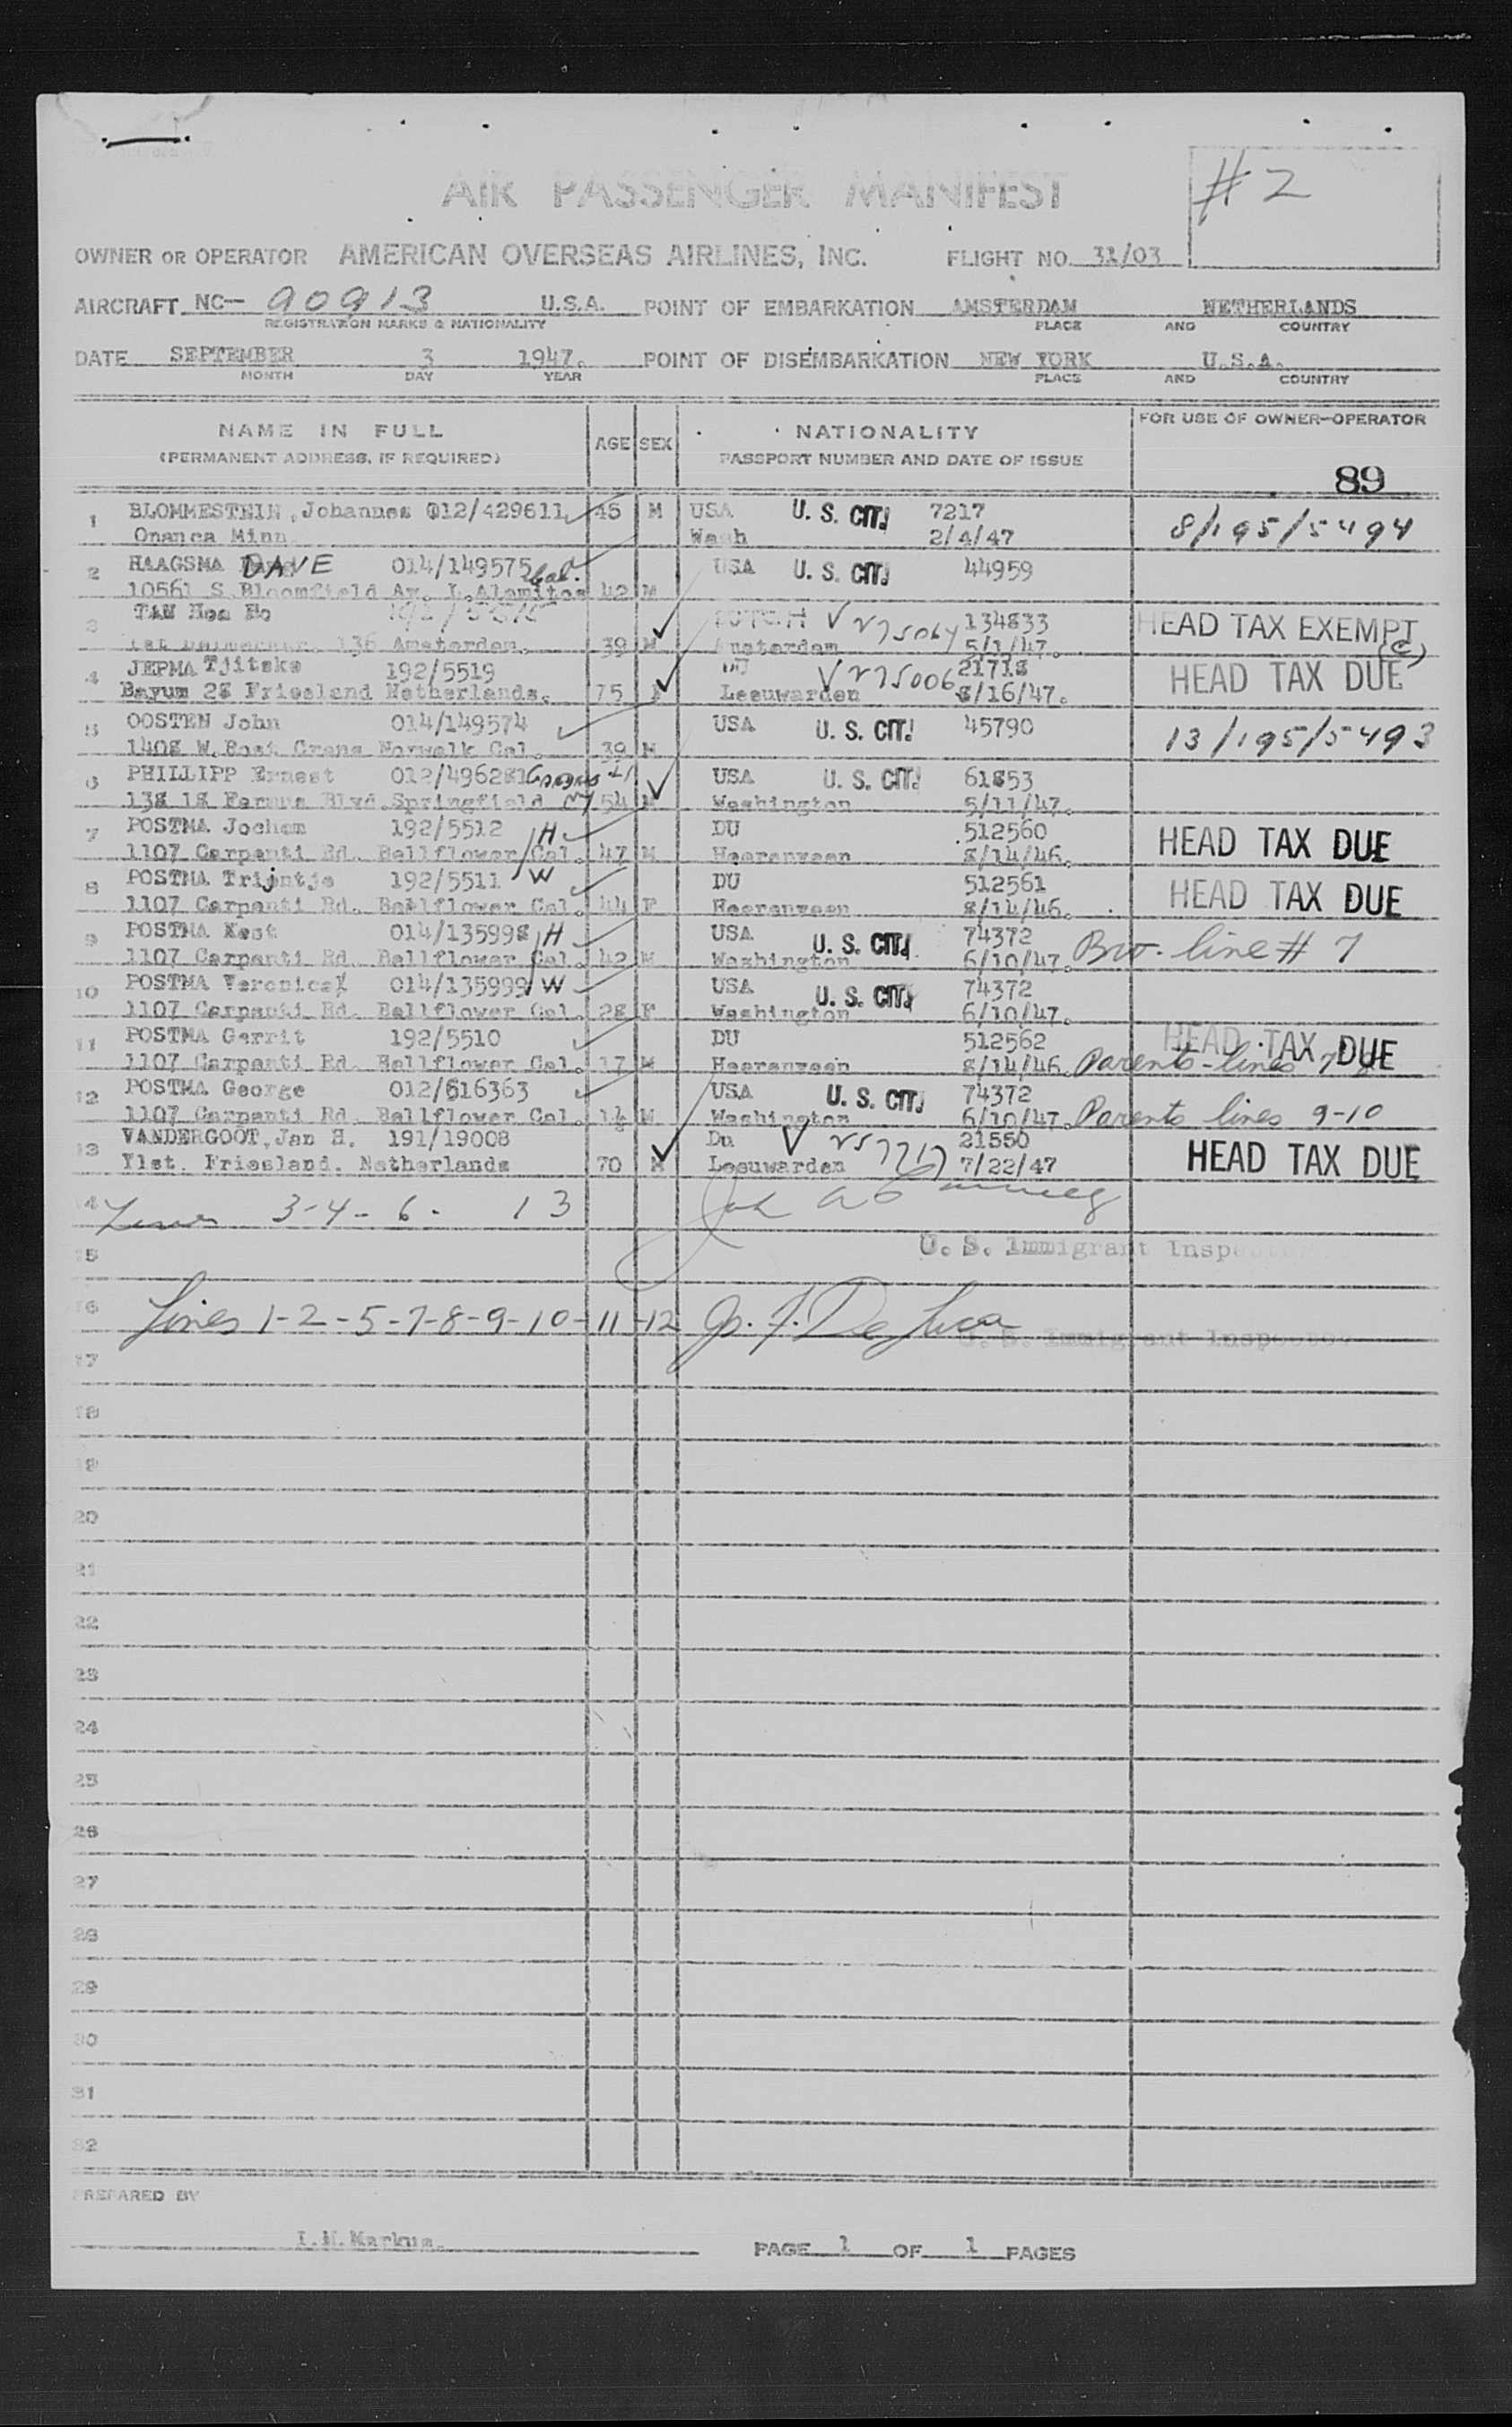 AIR PASSENGER MANIFEST
# 2
OWNER OR OPERATOR AMERICAN OVERSEAS AIRLINES, INC. FLIGHT NO. 31/03
AIRCRAFT NC— 90913 U.S.A. POINT OF EMBARKATION AMSTERDAM NETHERLANDS
REGISTRATION MARKS & NATIONALITY PLACE AND COUNTRY
DATE SEPTEMBER 3 1947. POINT OF DISEMBARKATION NEW YORK U.S.A.
MONTH DAY YEAR PLACE AND COUNTRY
NAME IN FULL AGE SEX NATIONALITY FOR USE OF OWNER-OPERATOR
(PERMANENT ADDRESS, IF REQUIRED) PASSPORT NUMBER AND DATE OF ISSUE
89
1 BLOMMESTEIN, Johannes 012/429611 45 M USA U. S. CIT. 7217 8/195/5494
Onanca Minn. Wash 2/4/47
2 HAAGSMA DAVE 014/149575 Cal. USA U. S. CIT. 44959
10561 S. Bloomfield Av. L.Alamitos 42 M
3 TAN Hoa Ho DUTCH V 275064 134833 HEAD TAX EXEMPT
136 Amsterdam. 39 M Amsterdam 5/1/47. (c)
4 JEPMA Tjitske 192/5519 DU V 275006 21718 HEAD TAX DUE
Bayum 28 Friesland Netherlands. 75 F Leeuwarden 8/16/47.
5 OOSTEN John 014/149574 USA U. S. CIT. 45790 13/195/5493
1408 W. Rost Crans Norwalk Cal. 39 M
6 PHILLIPP Ernest 012/496281 USA U. S. CIT. 61853
138 18 Farmrs Blvd Springfield NY 54 M Washington 5/11/47.
7 POSTMA Jochem 192/5512 H DU 512560 HEAD TAX DUE
1107 Carpenti Rd. Bellflower Cal. 47 M Heerenveen 8/14/46.
8 POSTMA Trijntje 192/5511 W DU 512561 HEAD TAX DUE
1107 Carpenti Rd. Bellflower Cal. 44 F Heerenveen 8/14/46.
9 POSTMA Kest 014/135998 H USA U. S. CIT. 74372 Bro- line # 7
1107 Carpenti Rd. Bellflower Cal. 42 M Washington 6/10/47.
10 POSTMA Veronica 014/135999 W USA U. S. CIT. 74372
1107 Carpenti Rd. Bellflower Cal. 28 F Washington 6/10/47.
11 POSTMA Gerrit 192/5510 DU 512562 HEAD TAX DUE
1107 Carpenti Rd. Bellflower Cal. 17 M Heerenveen 8/14/46. Parents - lines 7
12 POSTMA George 012/616363 USA U. S. CIT. 74372
1107 Carpenti Rd. Bellflower Cal. 1½ M Washington 6/10/47. Parents lines 9-10
13 VANDERGOOT, Jan H. 191/19008 Du V 257217 21550 HEAD TAX DUE
Ylst. Friesland. Netherlands 70 M Leeuwarden 7/22/47
14 Lines 3-4-6- 13
15 U. S. Immigrant Inspector
16 Lines 1-2-5-7-8-9-10-11-12 J. F. De Luca
U. S. Immigrant Inspector
17
18
19
20
21
22
23
24
25
26
27
28
29
30
31
32
PREPARED BY
I.M.Markus. PAGE 1 OF 1 PAGES